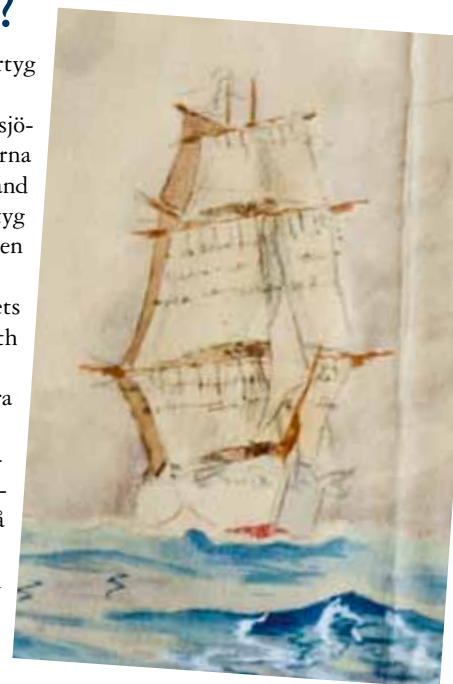 ?
rtyg
sjö-
rna
and
yg
en
ets
h
a
-
-
å